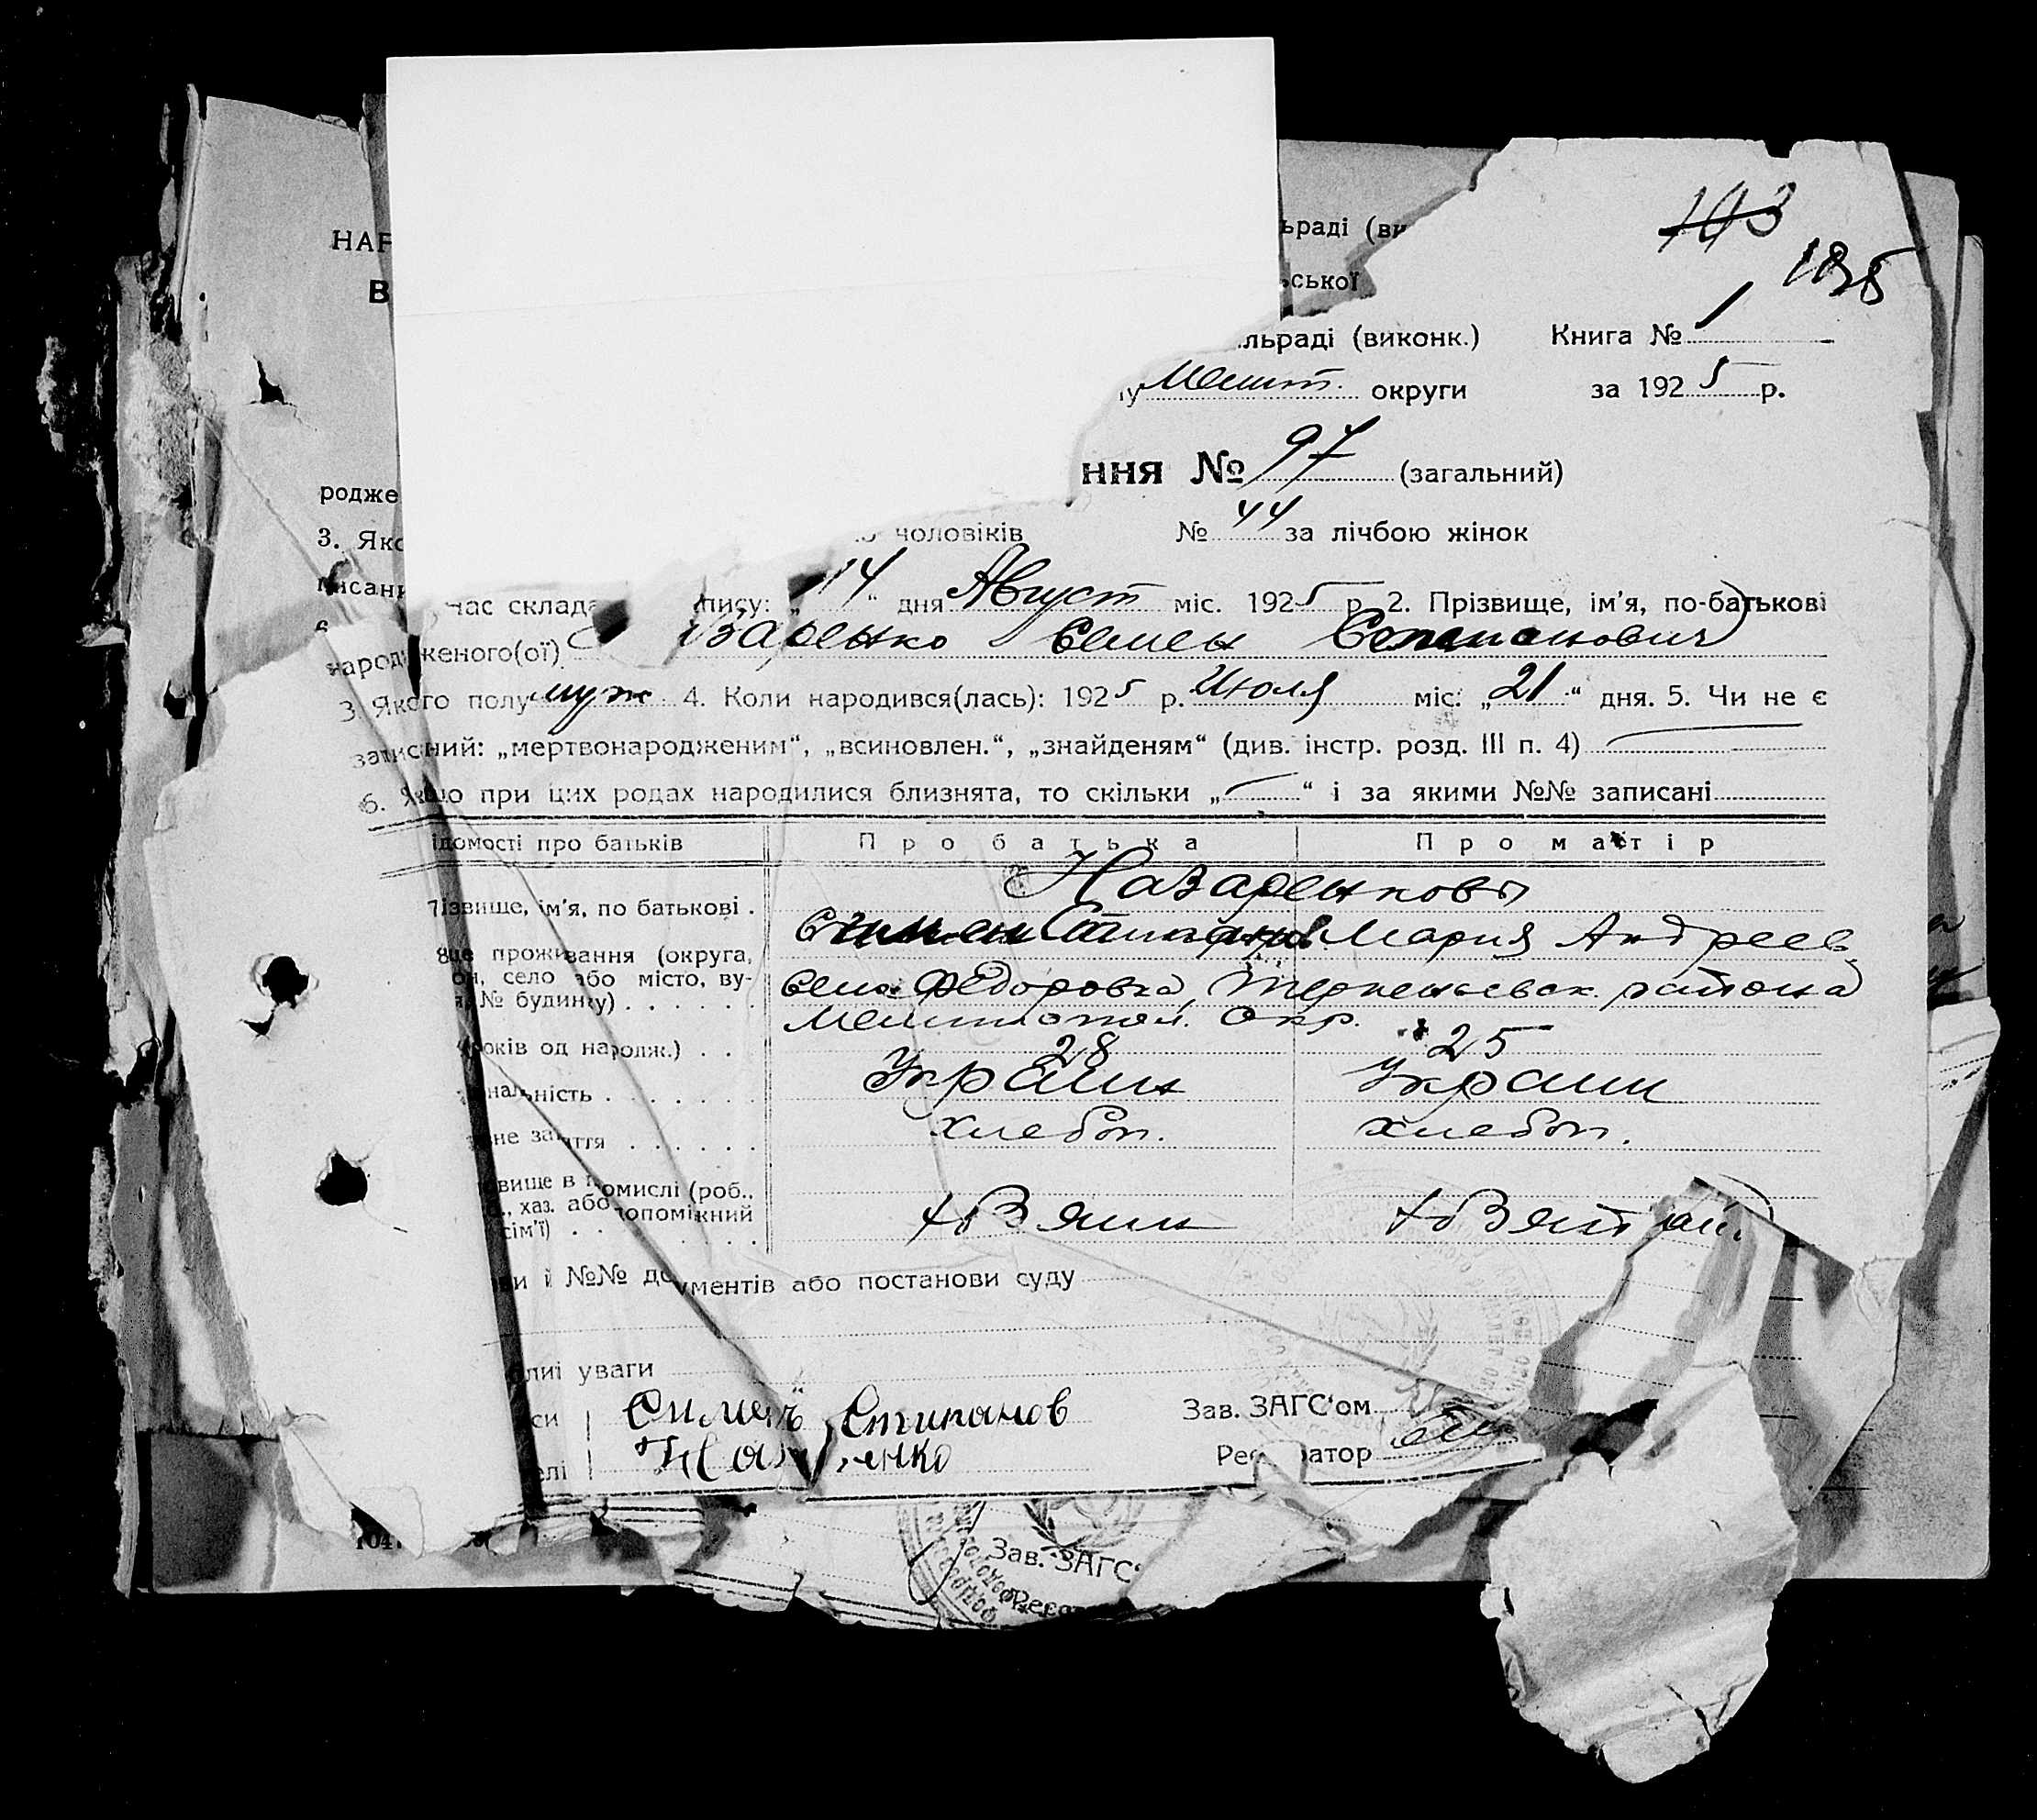 НАР
В
ьраді (ви
ської
143
185
льраді (виконк.) Книга № 1
у Мелит. округи за 1925 р.
ння № 97 (загальний)
родже
чоловіків № 44 за лічбою жінок
3. Яко
писани
час склада пису: „14“ дня Август міс. 1925 р. 2. Прізвище, ім’я, по-батькові
народженого(ої) заренко Семен
3. Якого полу муж 4. Коли народився(лась): 1925 р. Июля міс. „21“ дня. 5. Чи не є
записаний: „мертвонародженим“, „всиновлен.“, „знайденям“ (див. інстр. розд. III п. 4)
6. Якщо при цих родах народилися близнята, то скільки „—“ і за якими №№ записані
ідомості про батьків Про батька Про матір
Назаренковы
різвище, ім’я, по батькові . Мария Андреев.
ще проживання (округа, он, село або місто, ву- № будинку) . . . . . . Село Федоровка, района
Мелитопол. Окр.
років од народж.) . . 28 25
нальність . . . . . . . Украин Украин
не заняття . . . . . . хлебоп. хлебоп.
вище в промислі (роб.,
., хаз. або допоміжний
сім’ї) . . . . . . . .
и й №№ документів або постанови суду
ливі уваги
си Симен Стипанов Зав. ЗАГС‘ом
елі На енко Реєстратор
104
Зав. ЗАГС‘